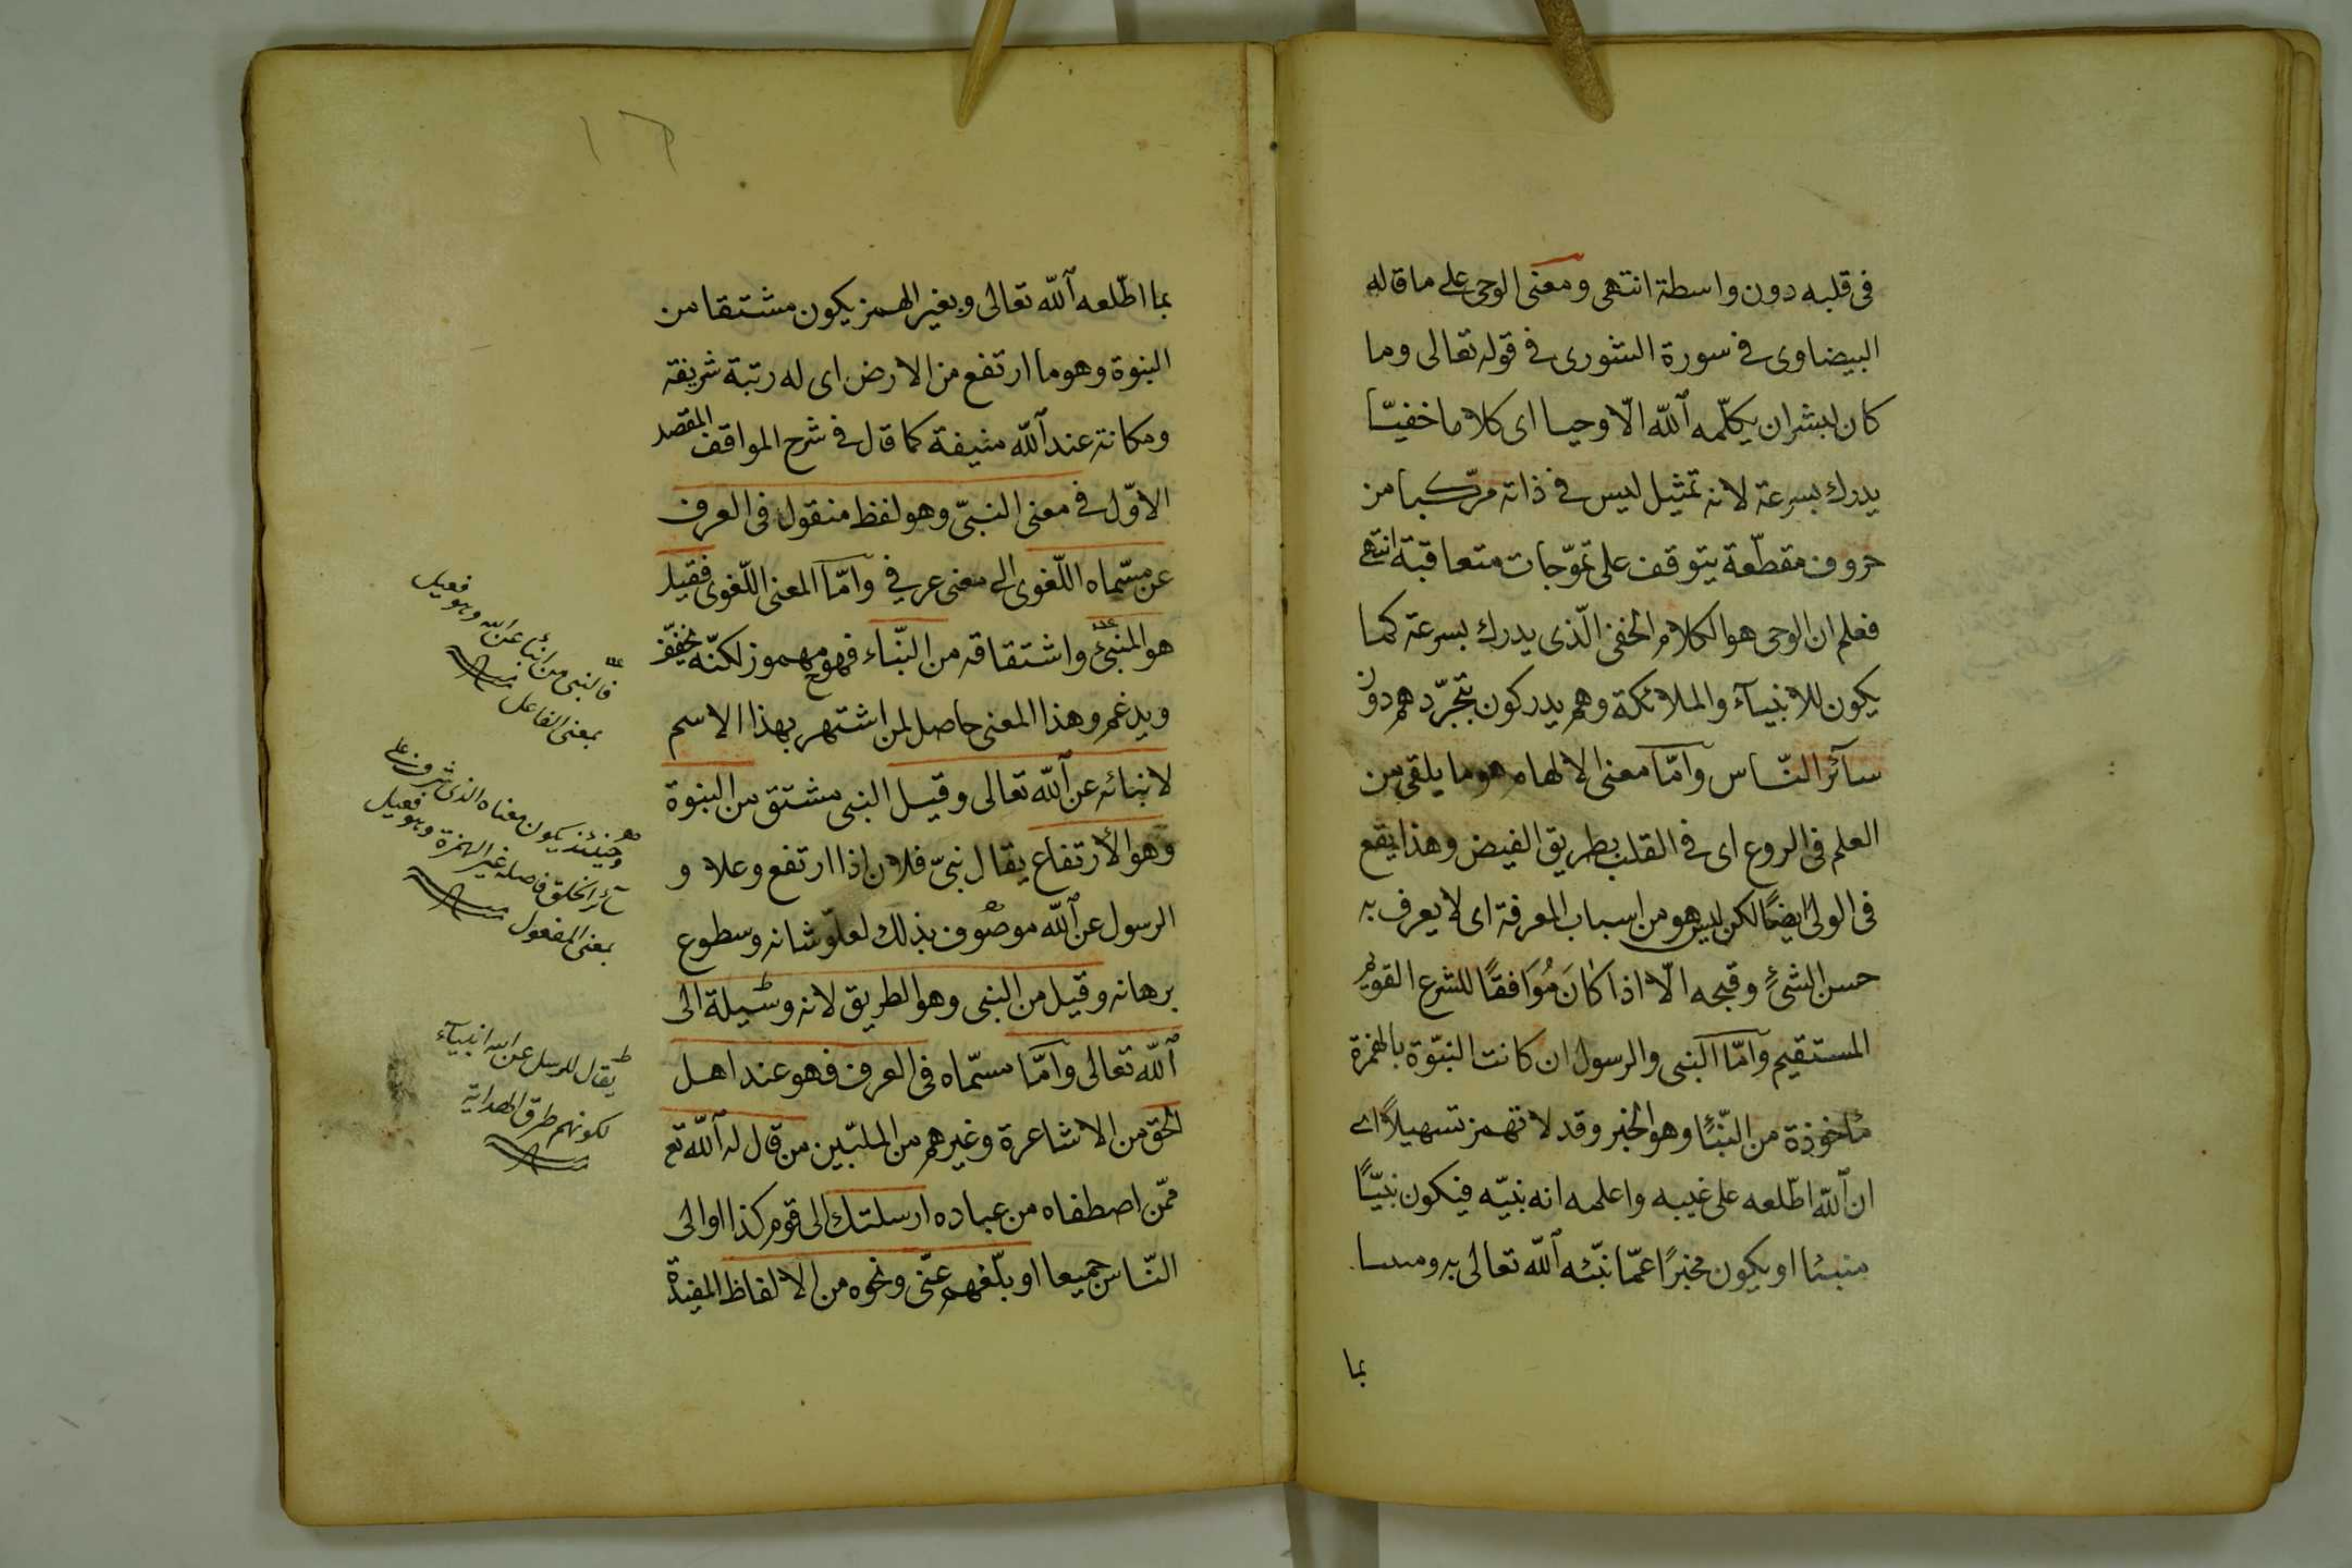 فى قلبه دون واسطة انتهى ومعنى الوحى على ما قاله
البيضاوى فى سورة الشورى فى قوله تعالى وما
كان لبشر ان يكلّمه الله الّا وحيا اى كلاما خفيّا
يدرك بسرعة لانه تمثيل ليس فى ذاته مركّبا من
حروف مقطّعة يتوقف على تموّجات متعاقبة انتهى
فعلم ان الوحى هو الكلام الخفى الّذى يدرك بسرعة كما
يكون للانبيآء والملائكة وهم يدركون بتجرّدهم دون
سآئر النّاس وامّا معنى الالهام هو ما يلقى من
العلم فى الروع اى فى القلب بطريق الفيض وهذا يقع
فى الولى ايضًا لكن ليس هو من اسباب المعرفة اى لا يعرف به
حسن الشئ وقبحه الّا اذا كَانَ مُوَافقًا للشرع القويم
المستقيم وامّا النبى والرسول ان كانت النبّوة بالهمزة
مأخوذة من النّبأ وهو الخبر وقد لا تهمز تسهيلاً اى
ان الله اطّلعه على غيبه واعلمه انه نبيّه فيكون نبيّاً
منبئا او يكون مخبرًا عمّا نبّئه الله تعالى به ومنبئا
بما
١٦
بما اطّلعه الله تعالى وبغير الهمز يكون مشتقا من
النبوة وهو ما ارتفع من الارض اى له رتبة شريفة
ومكانة عند الله منيفة كما قال فى شرح المواقف المقصد
الاوّل فى معنى النبىّ وهو لفظ منقول فى العرف
عن مسّماه اللّغوى الى معنى عرفي وامّا المعنى اللّغوى فقيل
هو المنبئ واشتقاقه من النّباء فهو مهموز لكنّه يخفّف
ويدغم وهذا المعنى حاصل لمن اشتهر بهذا الاسم
لانبائه عن الله تعالى وقيل النبى مشتق من النبوة
وهو الأرتفاع يقال نبىّ فلان اذا ارتفع وعلا و
الرسول عن الله موصوف بذلك لعلوّ شانه وسطوع
برهانه وقيل من النبى وهو الطريق لانه وسيلة الى
الله تعالى وامّا مسمّاه فى العرف فهو عند اهل
الحق من الاشاعرة وغيرهم من الملّيين من قال له الله تع
ممّن اصطفاه من عباده ارسلتك الى قوم كذا او الى
النّاس جميعا او بلّغهم عنّى ونحوه من الالفاظ المفيدة
فالنبى من انبأ عن الله وهو فعيل
بمعنى الفاعل
وحينئذ يكون معناه الذى شرف على
سآئر الخلق فاصله غير الهمزة وهو فعيل
بمعنى المفعول
يقال للرسل عن الله انبيآء
لكونهم طرق الهداية